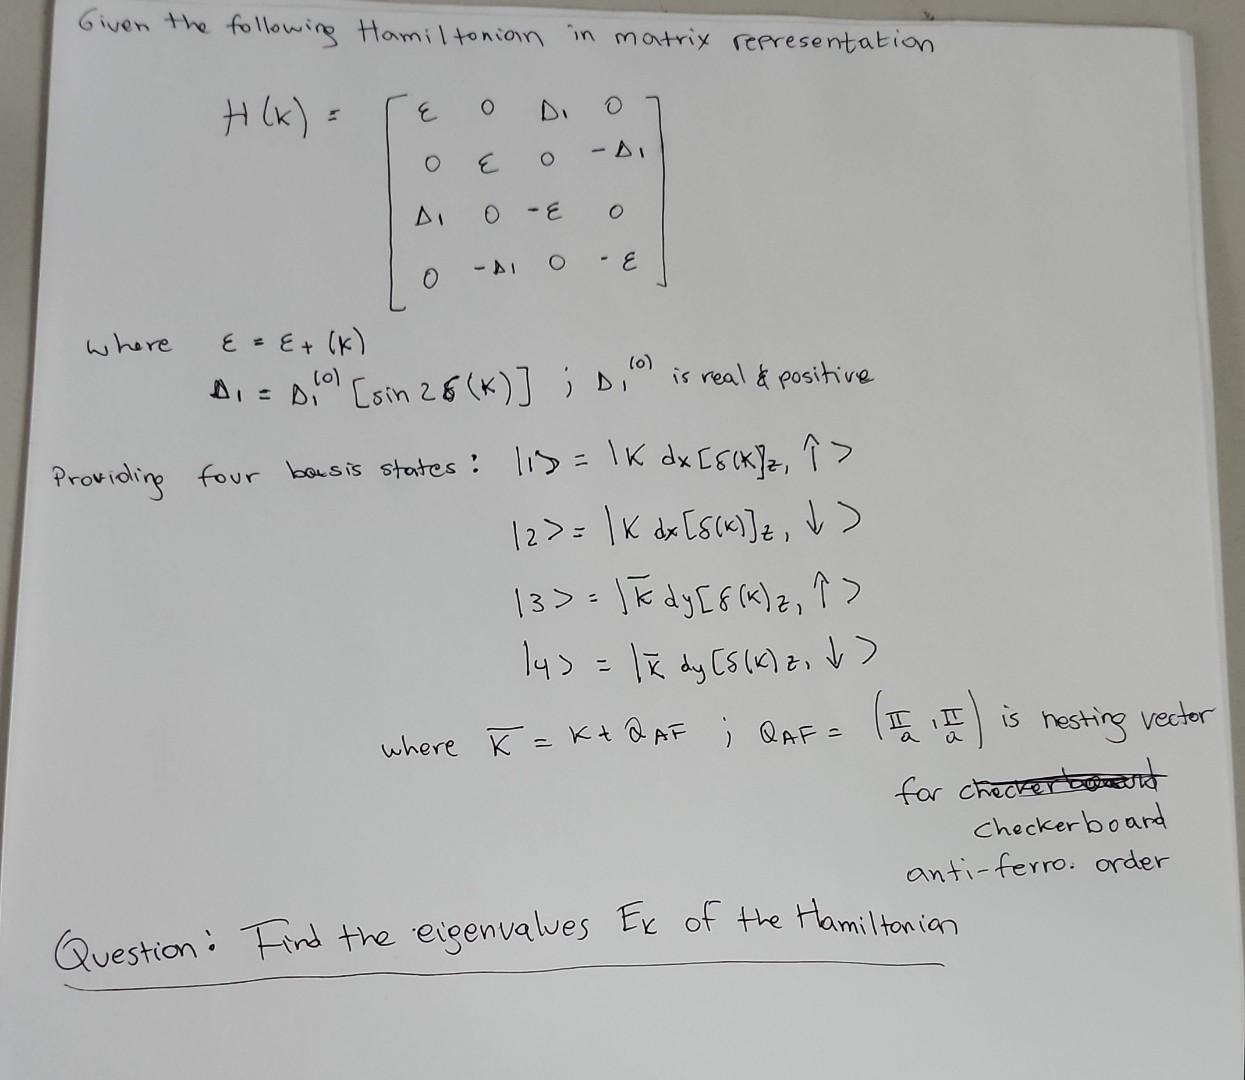 Given the following Hamiltonian in matrix representation
H(k) = [ ε 0 Δ₁ 0
0 ε 0 -Δ₁
Δ₁ 0 -ε 0
0 -Δ₁ 0 -ε ]
where ε = ε₊(k)
Δ₁ = Δ₁⁽⁰⁾ [sin 2δ(k)] ; Δ₁⁽⁰⁾ is real & positive
Providing four basis states : |1> = |k dx[δ(k)]z, ↑>
|2> = |k dx[δ(k)]z, ↓>
|3> = |k̄ dy[δ(k)z, ↑>
|4> = |k̄ dy[δ(k)z, ↓>
where k̄ = k + QAF ; QAF = (π/a, π/a) is nesting vector
for
checkerboard
anti-ferro. order
Question: Find the eigenvalues Ek of the Hamiltonian